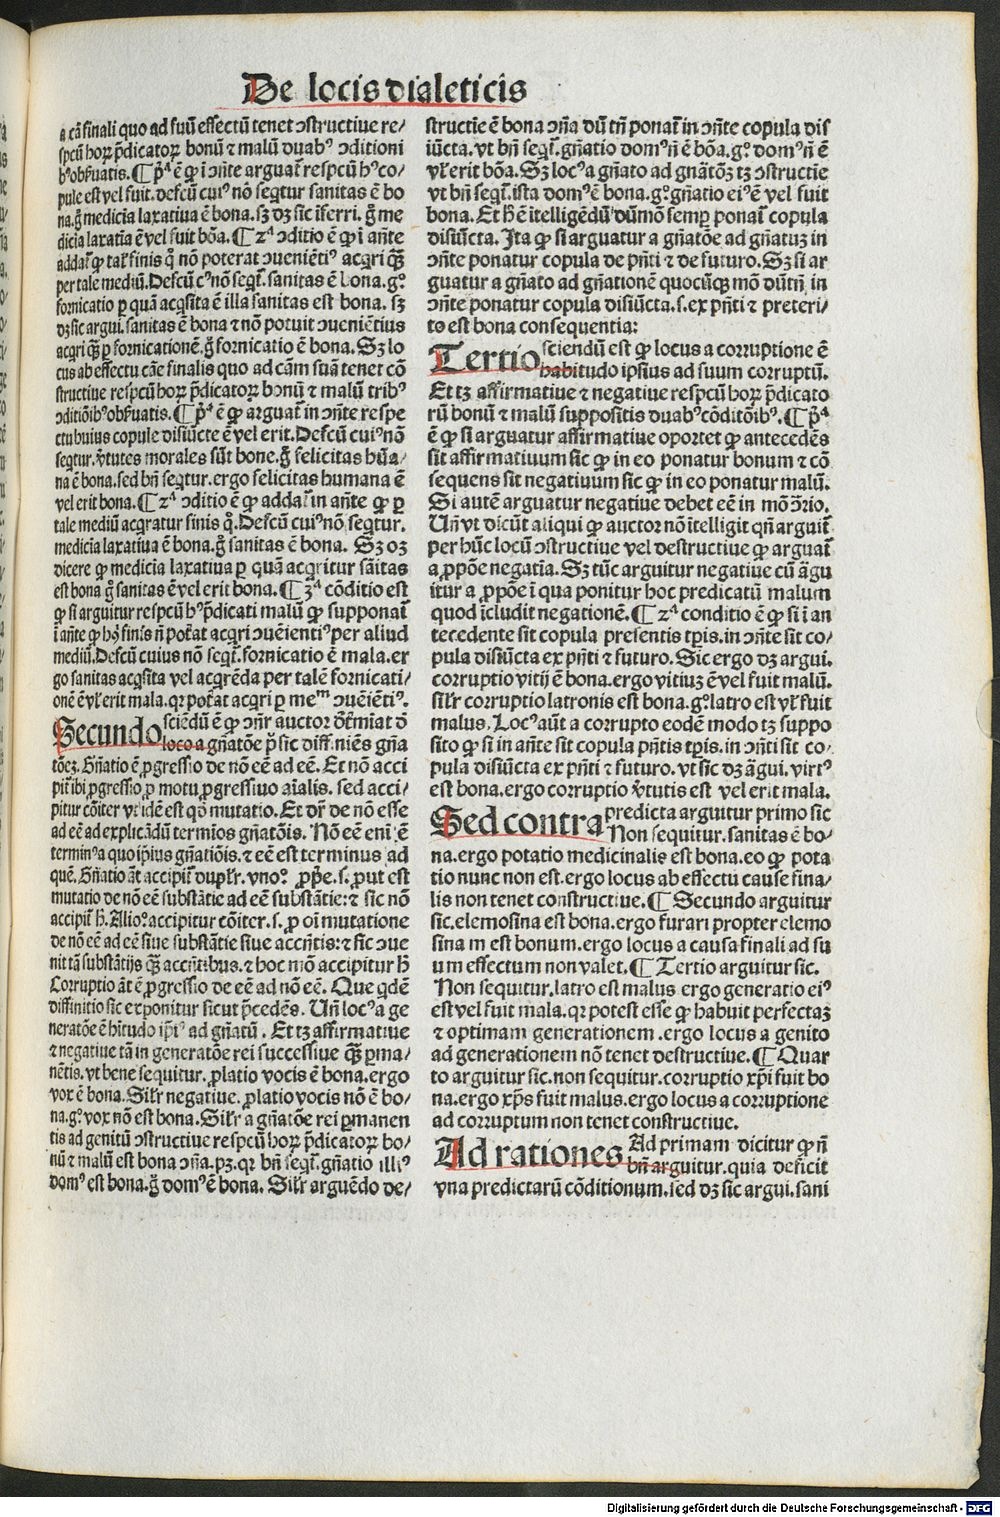 De locis dialeticis
a cā finali quo ad suū effectū tenet ↄstructiue re/
spcū hoꝝ p̄dicatoꝝ bonū ⁊ malū duabꝰ ↄditioni
bꝰ obſuatis. ¶ pͣ ē ꝙ i ↄn̄te arguat̄ respcū hꝰ co/
pule est vel fuit. defcū cuiꝰ nō seqtur sanitas ē bo
na. g̊ medicīa laxatiua ē bona. sꝫ dꝫ sic īferri. g̊ me
dicīa laxatīa ē vel fuit bōa. ¶ 2ͣ ↄditio ē ꝙ i an̄te
addat̄ ꝙ tal' finis q̄ nō poterat ↄueniētiꝰ acqri qͣꝫ
per tale mediū. Defcū cꝰ nō seqt̄. sanitas ē bona. gͦ
fornicatio p quā acqsita ē illa sanitas est bona. sꝫ
dꝫ sic argui. sanitas ē bona ⁊ nō potuit ↄueniētius
acqri qͣꝫ p fornicationē. g̊ fornicatio ē bona. Sꝫ lo
cus ab effectu cāe finalis quo ad cām suā tenet cō
structiue respcū hoꝝ p̄dicatoꝝ bonū ⁊ malū tribꝰ
ↄditiōibꝰ obſuatis. ¶ pͣ ē ꝙ arguat̄ in ↄn̄te respe
ctu huius copule disiūcte ē vel erit. Defcū cuiꝰ nō
seqtur. v̄tutes morales sūt bone. g̊ felicitas hūa/
na ē bona. sed bn̄ seqtur. ergo felicitas humana ē
vel erit bona. ¶ 2ͣ ↄditio ē ꝙ addat̄ in an̄te ꝙ p
tale mediū acqratur finis q̄. Defcū cuiꝰ nō seqtur.
medicīa laxatiua ē bona. g̊ sanitas ē bona. Sꝫ oꝫ
dicere ꝙ medicīa laxatiua p quā acqritur sāitas
est bona g̊ sanitas ē vel erit bona. ¶ 3ͣ cōditio est
ꝙ si arguitur respcū hꝰ p̄dicati malū ꝙ supponat̄
i an̄te ꝙ hꝰ finis n̄ pot̄at acqri ↄuēientiꝰ per aliud
mediū. Defcū cuius nō seqt̄. fornicatio ē mala. er
go sanitas acqsita vel acqrēda per talē fornicati/
onē ē vl' erit mala. qꝛ pot̄at acqri p meᵐ ↄuēietiꝰ.
Secundo sciendū ē ꝙ ↄn̄r auctor dt̄ermiat d̄
loco a gn̄atōe p̄ sic diffiniēs gn̄a
tōeꝫ. Gn̄atio ē ꝓgressio de nō eē ad eē. Et nō acci
pit̄ ibi ꝓgressio ꝓ motu ꝓgressiuo aīalis. sed acci/
pitur cōiter vt idē est qd̓ mutatio. Et dr̄ de nō esse
ad eē ad explicādū termios gn̄atōis. Nō eē eni ē
terminꝰ a quo ipius gn̄atiōis. ⁊ eē est terminus ad
quē. Gn̄atio āt accipit̄ duplr̄. vnoͦ. ꝓp̄e. s. ꝓut est
mutatio de nō eē substātie ad eē substātie: ⁊ sic nō
accipit̄ h̄. Alioͦ. accipitur cōiter. s. ꝓ oī mutatione
de nō eē ad eē siue substātie siue accn̄tis: ⁊ sic ↄue
nit tā substātijs qͣꝫ accn̄tibus. ⁊ hoc mō accipitur h̄
Corruptio āt ē ꝓgressio de eē ad nō eē. Que qdē
diffinitio sic exponitur sicut p̄cedēs. Un̄ locꝰ a ge
neratōe ē hītudo ip̄iꝰ ad gn̄atū. Et tꝫ affirmatiue
⁊ negatiue tā in generatōe rei successiue qͣꝫ pma/
nētis. vt bene sequitur. ꝓlatio vocis ē bona. ergo
vox ē bona. Silr̄ negatiue. ꝓlatio vocis nō ē bo/
na. gͦ. vox nō est bona. Silr̄ a gn̄atōe rei pmanen
tis ad genitū ↄstructiue respcū hoꝝ p̄dicatoꝝ bo/
nū ⁊ malū est bona ↄn̄a. pꝫ. qꝛ bn̄ seqt̄. gn̄atio illiꝰ
domꝰ est bona. g̊ domꝰ ē bona. Silr̄ arguēdo de/
structīe ē bona ↄn̄a dū tn̄ ponat̄ in ↄn̄te copula dis
iūcta. vt bn̄ seqt̄. gn̄atio domꝰ n̄ ē bōa. gͦ. domꝰ n̄ ē
vl' erit bōa. Sꝫ locꝰ a gn̄ato ad gn̄atōꝫ tꝫ ↄstructie
vt bn̄ seqt̄. ista domꝰ ē bona. gͦ. gn̄atio eiꝰ ē vel fuit
bona. Et h̄ ē itelligēdū dūmō semp ponat̄ copula
disiūcta. Ita ꝙ si arguatur a gn̄atōe ad gn̄atuꝫ in
ↄn̄te ponatur copula de pn̄ti ⁊ de futuro. Sꝫ si ar
guatur a gn̄ato ad gn̄ationē quocūqꝫ mō dūtn̄ in
ↄn̄te ponatur copula disiūcta. s. ex pn̄ti ⁊ preteri/
to est bona consequentia:
Tertio sciendū est ꝙ locus a corruptione ē
habitudo ipsius ad suum corruptū.
Et tꝫ affirmatiue ⁊ negatiue respcū hoꝝ p̄dicato
rū bonū ⁊ malū suppositis duabꝰ cōditōibꝰ. ¶ pͣ
ē ꝙ si arguatur affirmatiue oportet ꝙ antecedēs
sit affirmatiuum sic ꝙ in eo ponatur bonum ⁊ cō
sequens sit negatiuum sic ꝙ in eo ponatur malū.
Si autē arguatur negatiue debet eē in mō ↄ̄rio.
Un̄ vt dicūt aliqui ꝙ auctor nō itelligit qn̄ arguit̄
per hūc locū ↄstructiue vel destructiue ꝙ arguat̄
a ꝓpōe negatīa. Sꝫ tūc arguitur negatiue cū āgu
itur a ꝓpōe ī qua ponitur hoc predicatū malum
quod īcludit negationē. ¶ 2ͣ conditio ē ꝙ si ī an
tecedente sit copula presentis tpis. in ↄn̄te sit co/
pula disiūcta ex pn̄ti ⁊ futuro. Sic ergo dꝫ argui.
corruptio vitij ē bona. ergo vitiuꝫ ē vel fuit malū.
silr̄ corruptio latronis est bona. gͦ. latro est vl' fuit
malus. Locꝰ aūt a corrupto eodē modo tꝫ suppo
sito ꝙ si in an̄te sit copula pn̄tis tpis. in ↄn̄ti sit co
pula disiūcta ex pn̄ti ⁊ futuro. vt sic dꝫ āgui. virtꝰ
est bona. ergo corruptio v̄tutis est vel erit mala.
Sed contra predicta arguitur primo sic
Non sequitur. sanitas ē bo/
na. ergo potatio medicinalis est bona. eo ꝙ pota
tio nunc non est. ergo locus ab effectu cause fina/
lis non tenet constructiue. ¶ Secundo arguitur
sic. elemosina est bona. ergo furari propter elemo
sina m est bonum. ergo locus a causa finali ad su
um effectum non valet. ¶ Tertio arguitur sic.
Non sequitur. latro est malus ergo generatio eiꝰ
est vel fuit mala. qꝛ potest esse ꝙ habuit perfectaꝫ
⁊ optimam generationem. ergo locus a genito
ad generationem nō tenet destructiue. ¶ Quar
to arguitur sic. non sequitur. corruptio xp̄i fuit bo
na. ergo xp̄s fuit malus. ergo locus a corruptione
ad corruptum non tenet constructiue.
Ad rationes Ad primam dicitur ꝙ n̄
bn̄ arguitur. quia deficit
vna predictarū cōditionum. sed dꝫ sic argui. sani
Digitalisierung gefördert durch die Deutsche Forschungsgemeinschaft - DFG